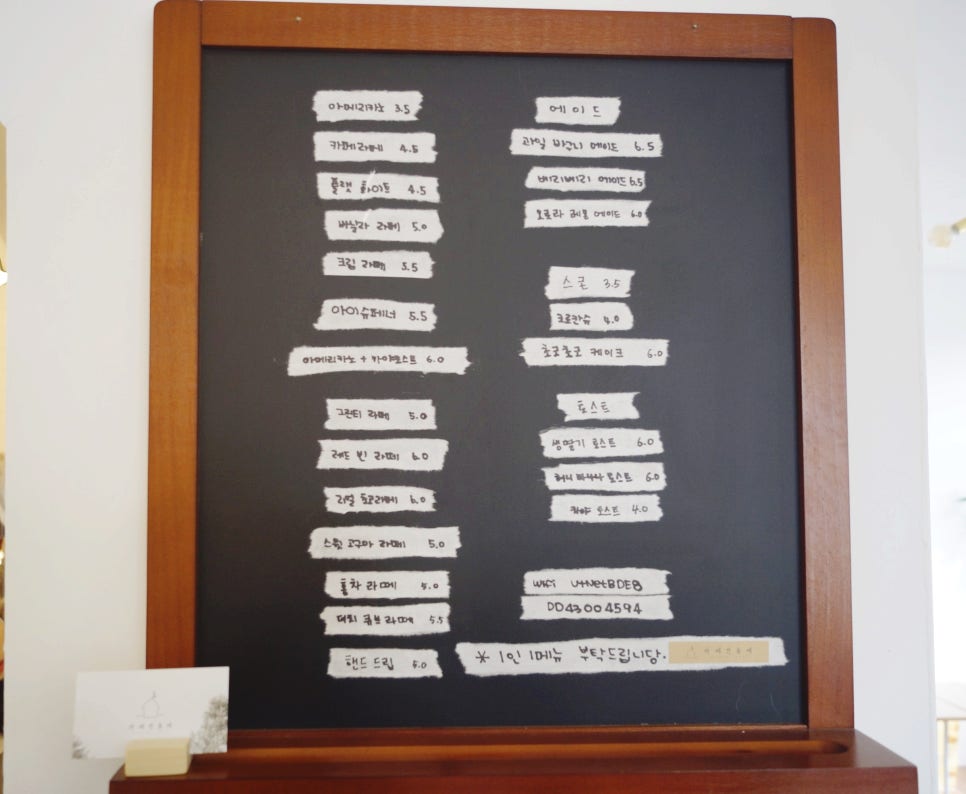 아메리카노 3.5
카페라떼 4.5
플랫 화이트 4.5
바닐라 라떼 5.0
크림 라떼 5.5
아인슈페너 5.5
아메리카노 + 카야토스트 6.0
그린티 라떼 5.0
레드 빈 라떼 6.0
리얼 초코라떼 6.0
스윗 고구마 라떼 5.0
홍차 라떼 5.0
더치 큐브 라떼 5.5
핸드 드립 5.0
에이드
과일 바구니 에이드 6.5
베리베리 에이드 6.5
오로라 레몬 에이드 6.0
스콘 3.5
크로칸슈 4.0
초코초코 케이크 6.0
토스트
생딸기 토스트 6.0
허니 바나나 토스트 6.0
카야 토스트 4.0
wifi U+NetBDEB
DD43004594
* 1인 1메뉴 부탁드립니당.